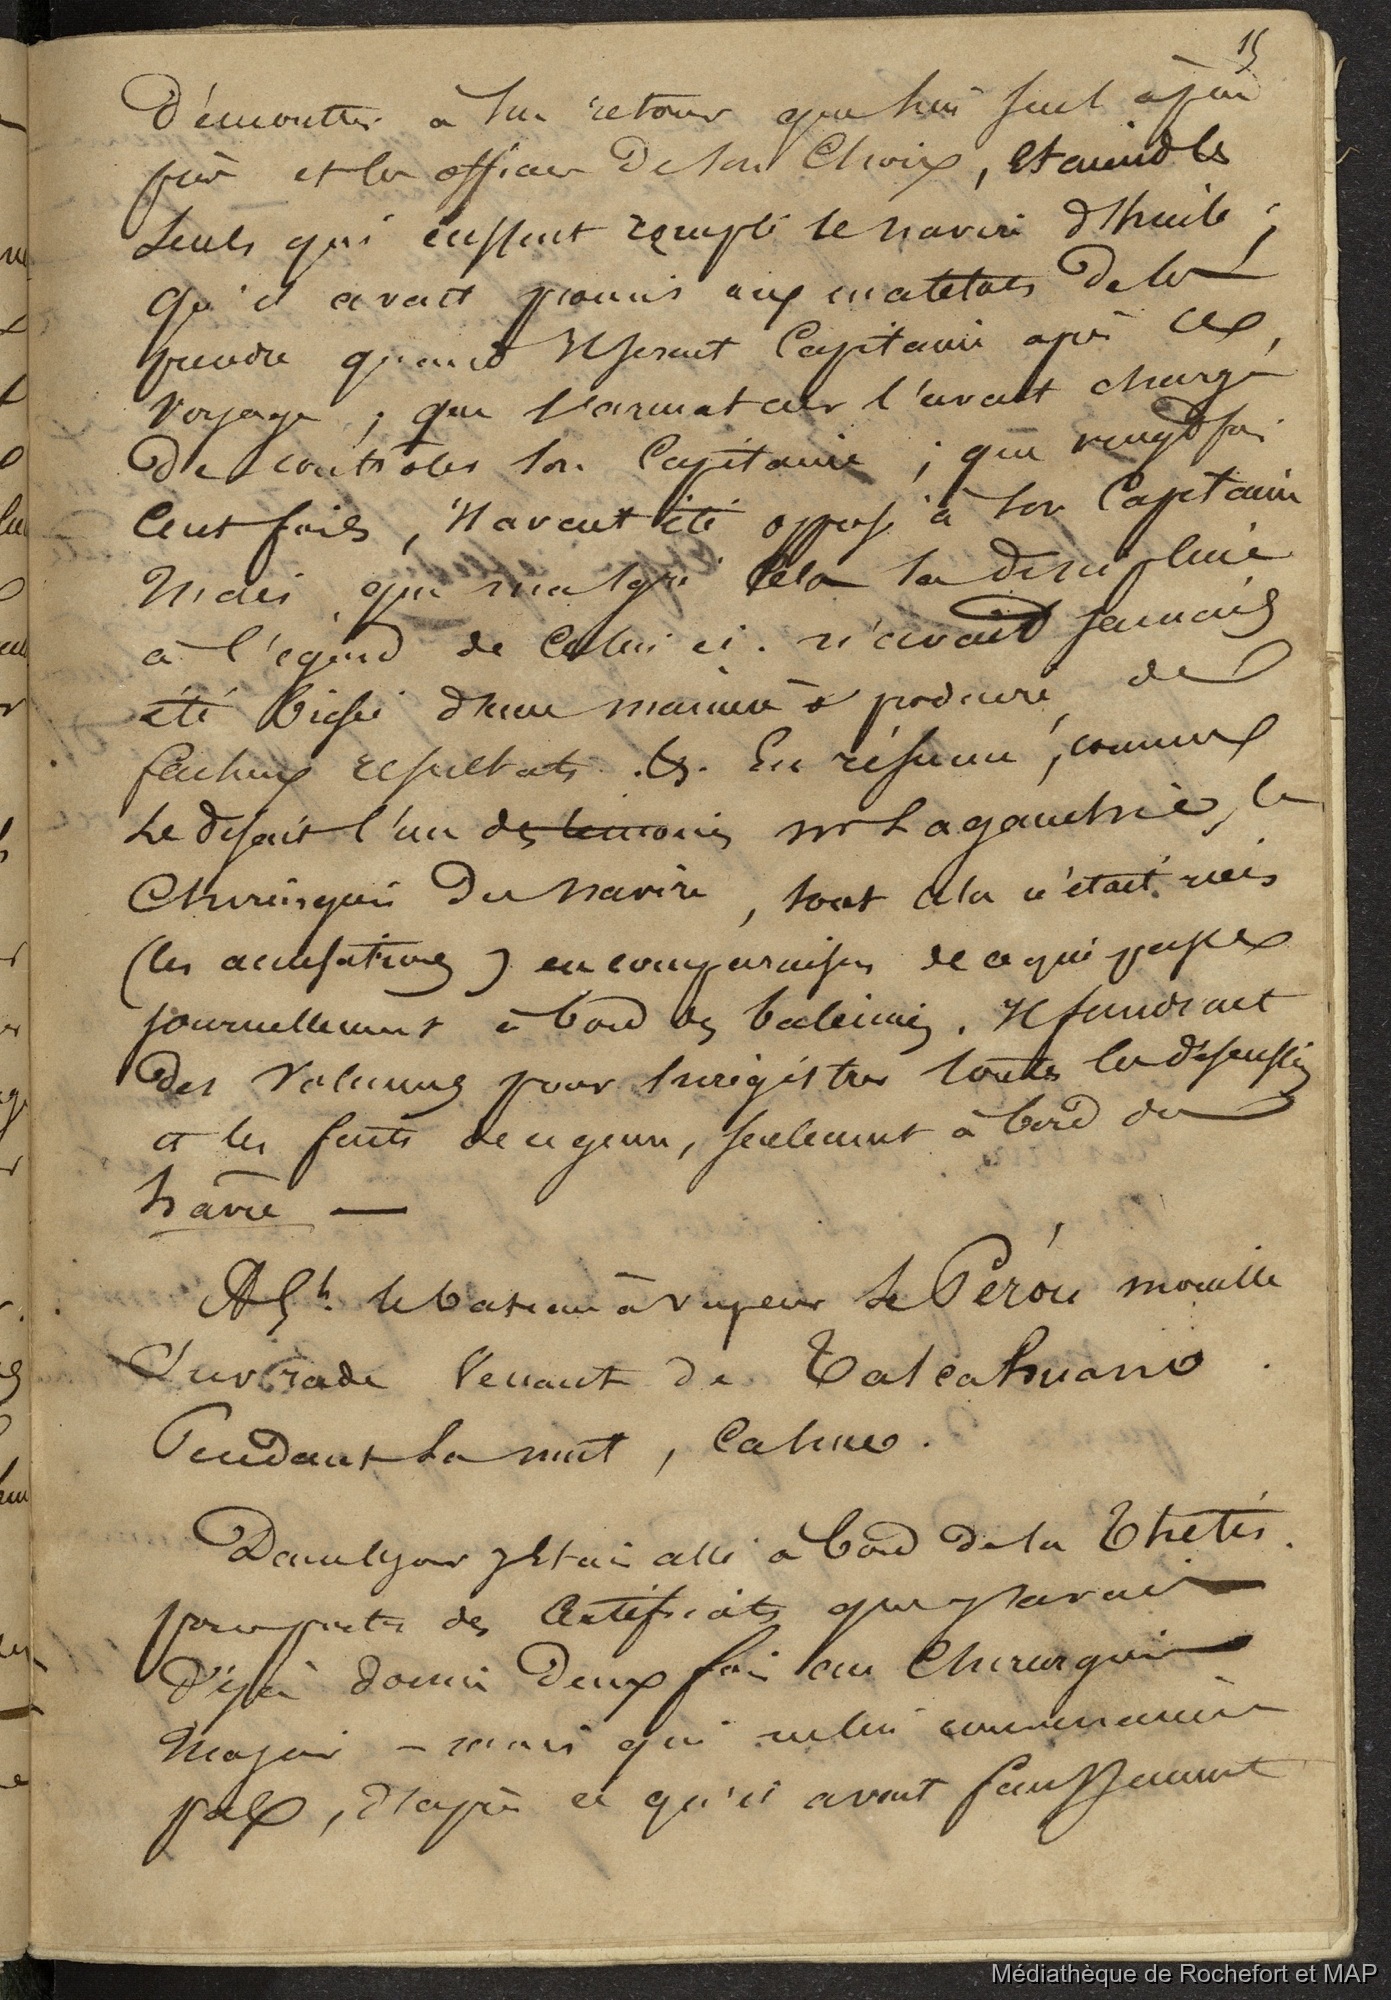 15
Démontrer à son retour que lui seul
et les officiers De son Choix, étaient les
seuls qui eussent rempli le navire d'huile ;
qu'il avait promis aux matelots De les
prendre quand Il serait Capitaine après ce
voyage ; que l'armateur l'avait chargé
De contrôler son Capitaine ; que vingt fois
Cent fois, Il avait été opposé à son Capitaine
Mais que malgré cela la discipline
à l'égard de Celui ci. n'avait jamais
été d'une manière à produire de
facheux resultats. &. En résumé, comme
Le disait l'un des temoins mr Lagautrie, le
Chirurgien Du navire, tout cela n'était rien
(les accusations) en comparaison de ce qui passe
journellement à bord des baleiniers. Il faudrait
Des Volumes pour enregistrer toutes les
et les faits de ce genre, seulement à bord du
havre —
A 5h. le bateau à vapeur Le Pérou mouille
sur rade Venant de Talcahuano.
Pendant la nuit, Calme.
Dans le jour j'étais allé à bord De la Thétis.
pour porter des Certificats que j'avais
Déjà donné Deux fois au Chirurgien
Major – mais qui ne lui convenaient
pas, D'après ce qu'il avait faussement
Médiathèque de Rochefort et MAP